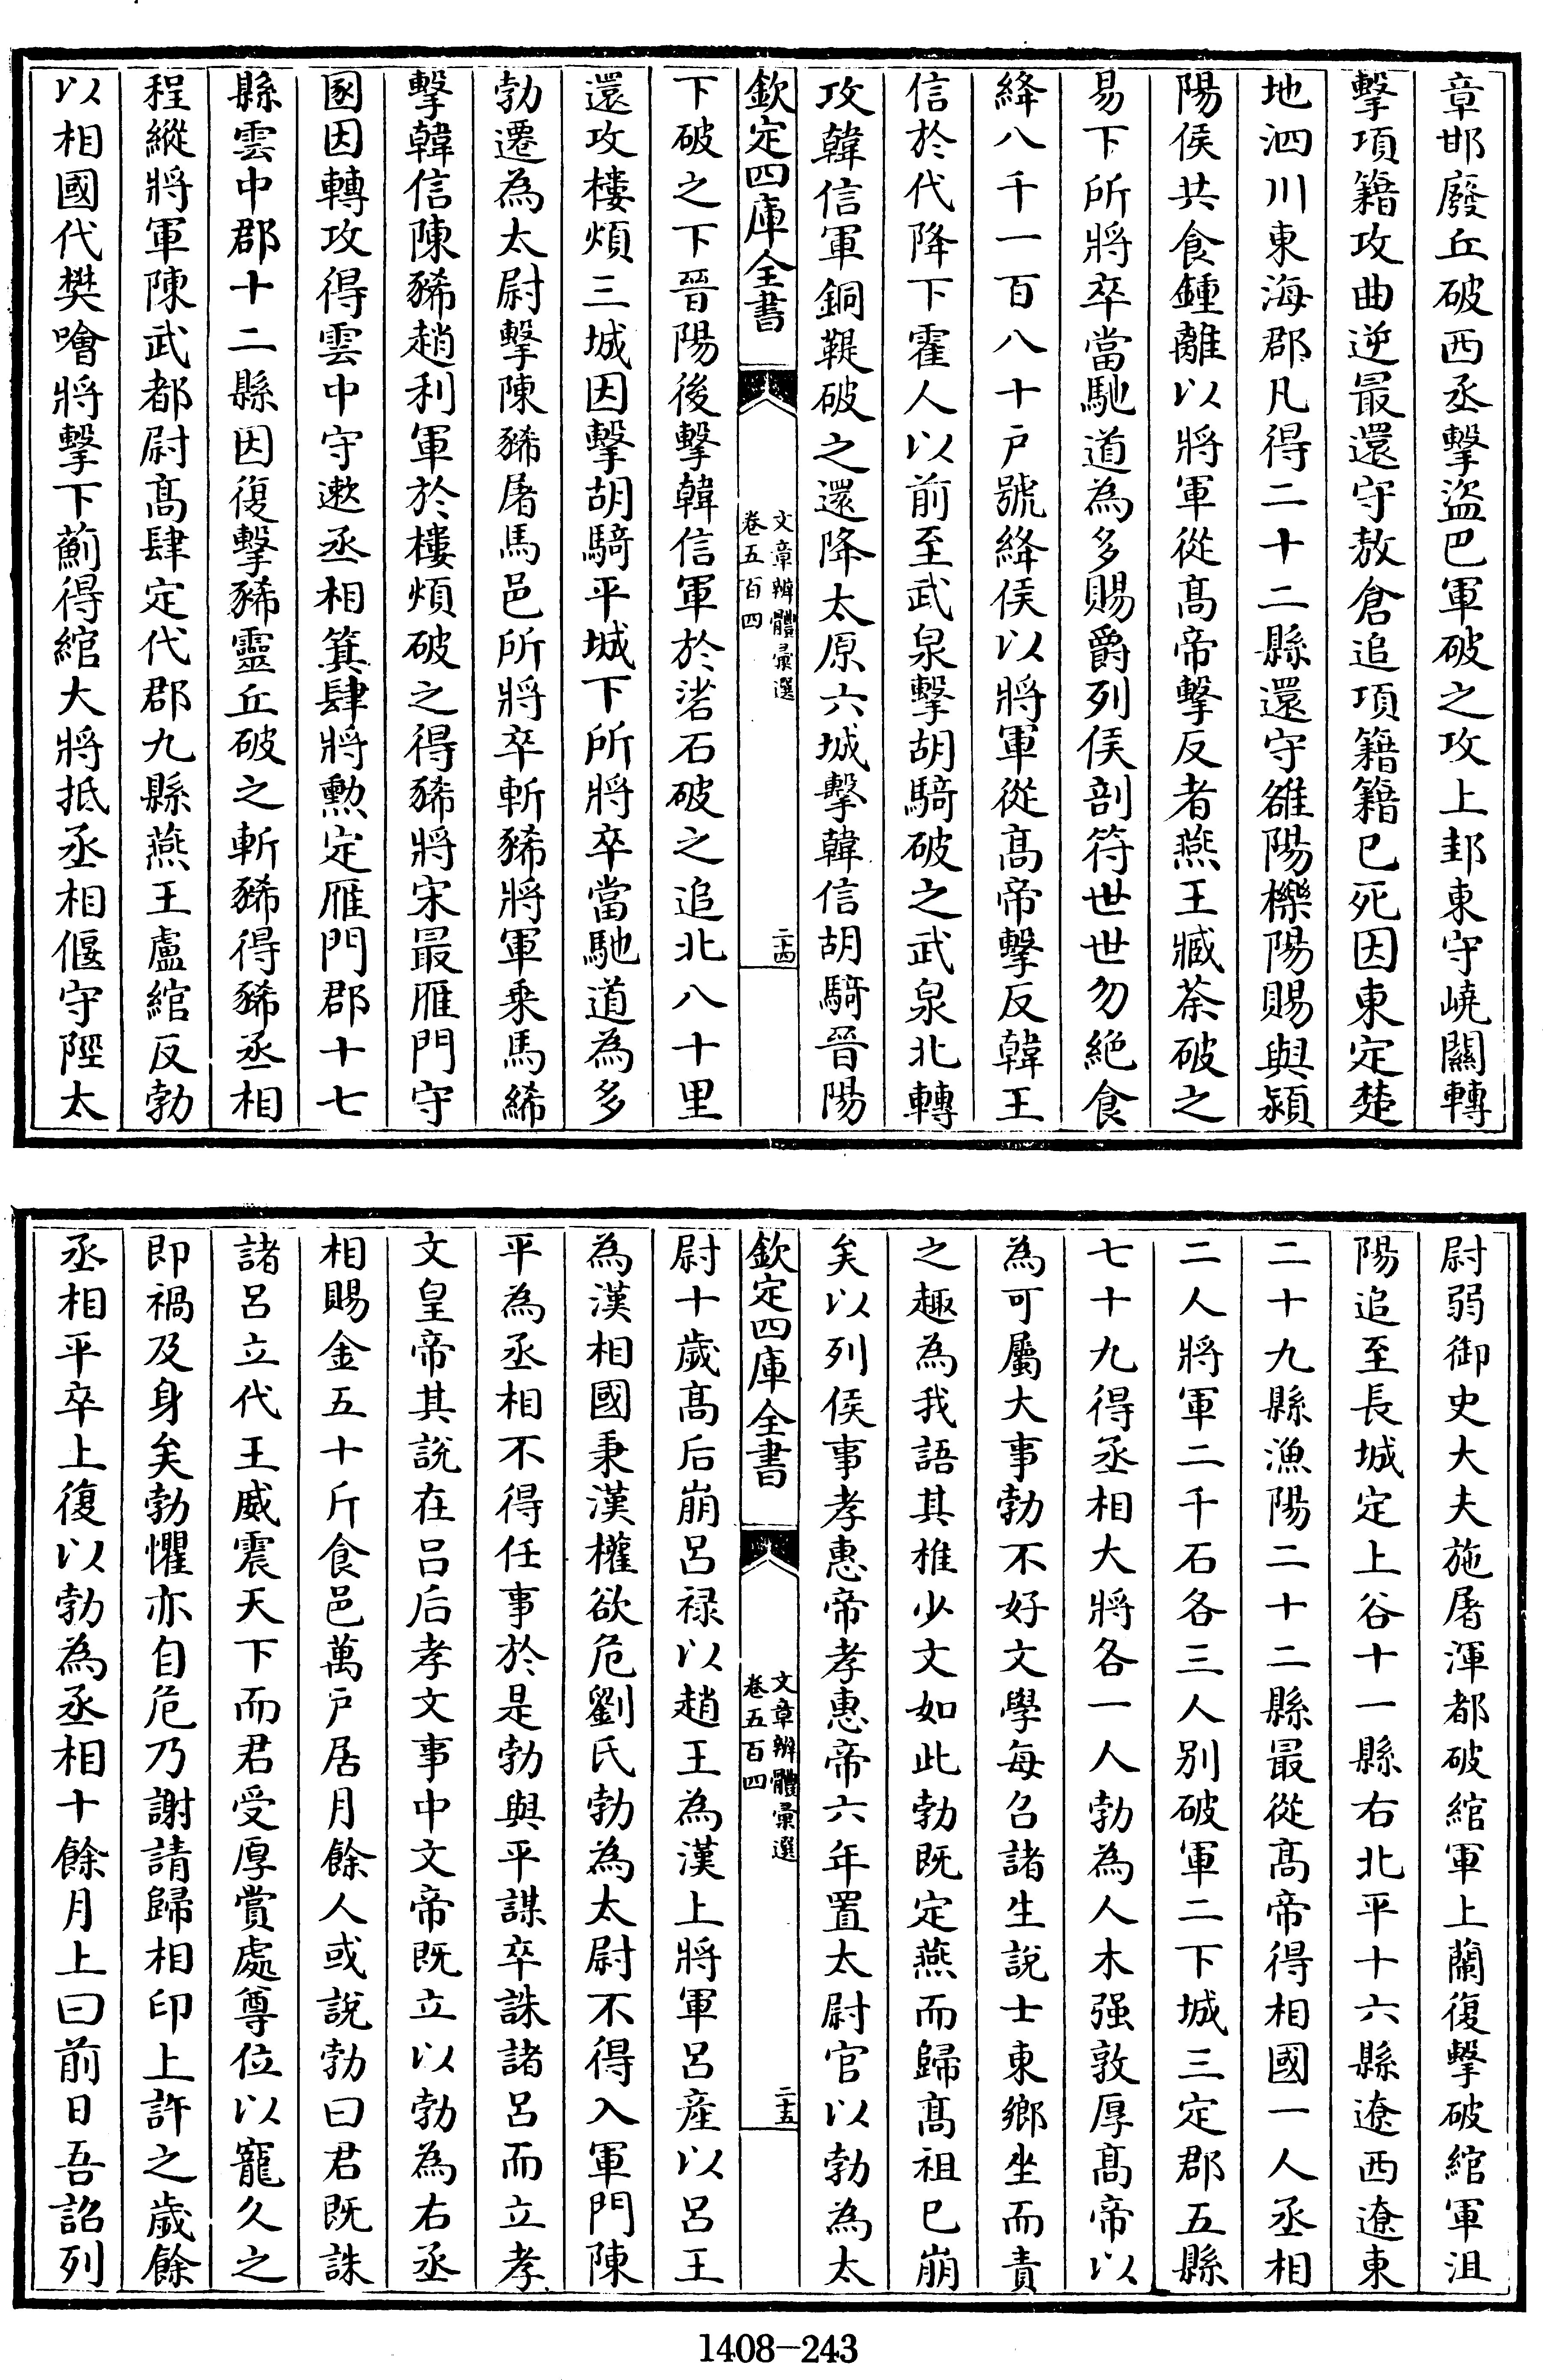 章邯廢丘破西丞擊盜巴軍破之攻上邽東守嶢關轉
擊項籍攻曲逆最還守敖倉追項籍籍已死因東定楚
地泗川東海郡凡得二十二縣還守雒陽櫟陽賜與潁
陽侯共食鍾離以將軍從高帝擊反者燕王臧荼破之
易下所將卒當馳道為多賜爵列侯剖符世世勿絕食
絳八千一百八十戶號絳侯以將軍從高帝擊反韓王
信於代降下霍人以前至武泉擊胡騎破之武泉北轉
攻韓信軍銅鞮破之還降太原六城擊韓信胡騎晉陽
欽定四庫全書
文章辨體彙選
卷五百四
二十四
下破之下晉陽後擊韓信軍於硰石破之追北八十里
還攻樓煩三城因擊胡騎平城下所將卒當馳道為多
勃遷為太尉擊陳豨屠馬邑所將卒斬豨將軍乘馬絺
擊韓信陳豨趙利軍於樓煩破之得豨將宋最雁門守
圂因轉攻得雲中守遫丞相箕肆將勲定雁門郡十七
縣雲中郡十二縣因復擊豨靈丘破之斬豨得豨丞相
程縱將軍陳武都尉高肆定代郡九縣燕王盧綰反勃
以相國代樊噲將擊下薊得綰大將抵丞相偃守陘太
尉弱御史大夫施屠渾都破綰軍上蘭復擊破綰軍沮
陽追至長城定上谷十一縣右北平十六縣遼西遼東
二十九縣漁陽二十二縣最從高帝得相國一人丞相
二人將軍二千石各三人別破軍二下城三定郡五縣
七十九得丞相大將各一人勃為人木强敦厚高帝以
為可屬大事勃不好文學每召諸生說士東鄉坐而責
之趣為我語其椎少文如此勃既定燕而歸高祖已崩
矣以列侯事孝惠帝孝惠帝六年置太尉官以勃為太
欽定四庫全書
文章辨體彙選
卷五百四
二十五
尉十歲高后崩呂祿以趙王為漢上將軍呂產以呂王
為漢相國秉漢權欲危劉氏勃為太尉不得入軍門陳
平為丞相不得任事於是勃與平謀卒誅諸呂而立孝
文皇帝其說在呂后孝文事中文帝既立以勃為右丞
相賜金五十斤食邑萬戶居月餘人或說勃曰君既誅
諸呂立代王威震天下而君受厚賞處尊位以寵久之
即禍及身矣勃懼亦自危乃謝請歸相印上許之歲餘
丞相平卒上復以勃為丞相十餘月上曰前日吾詔列
1408-243